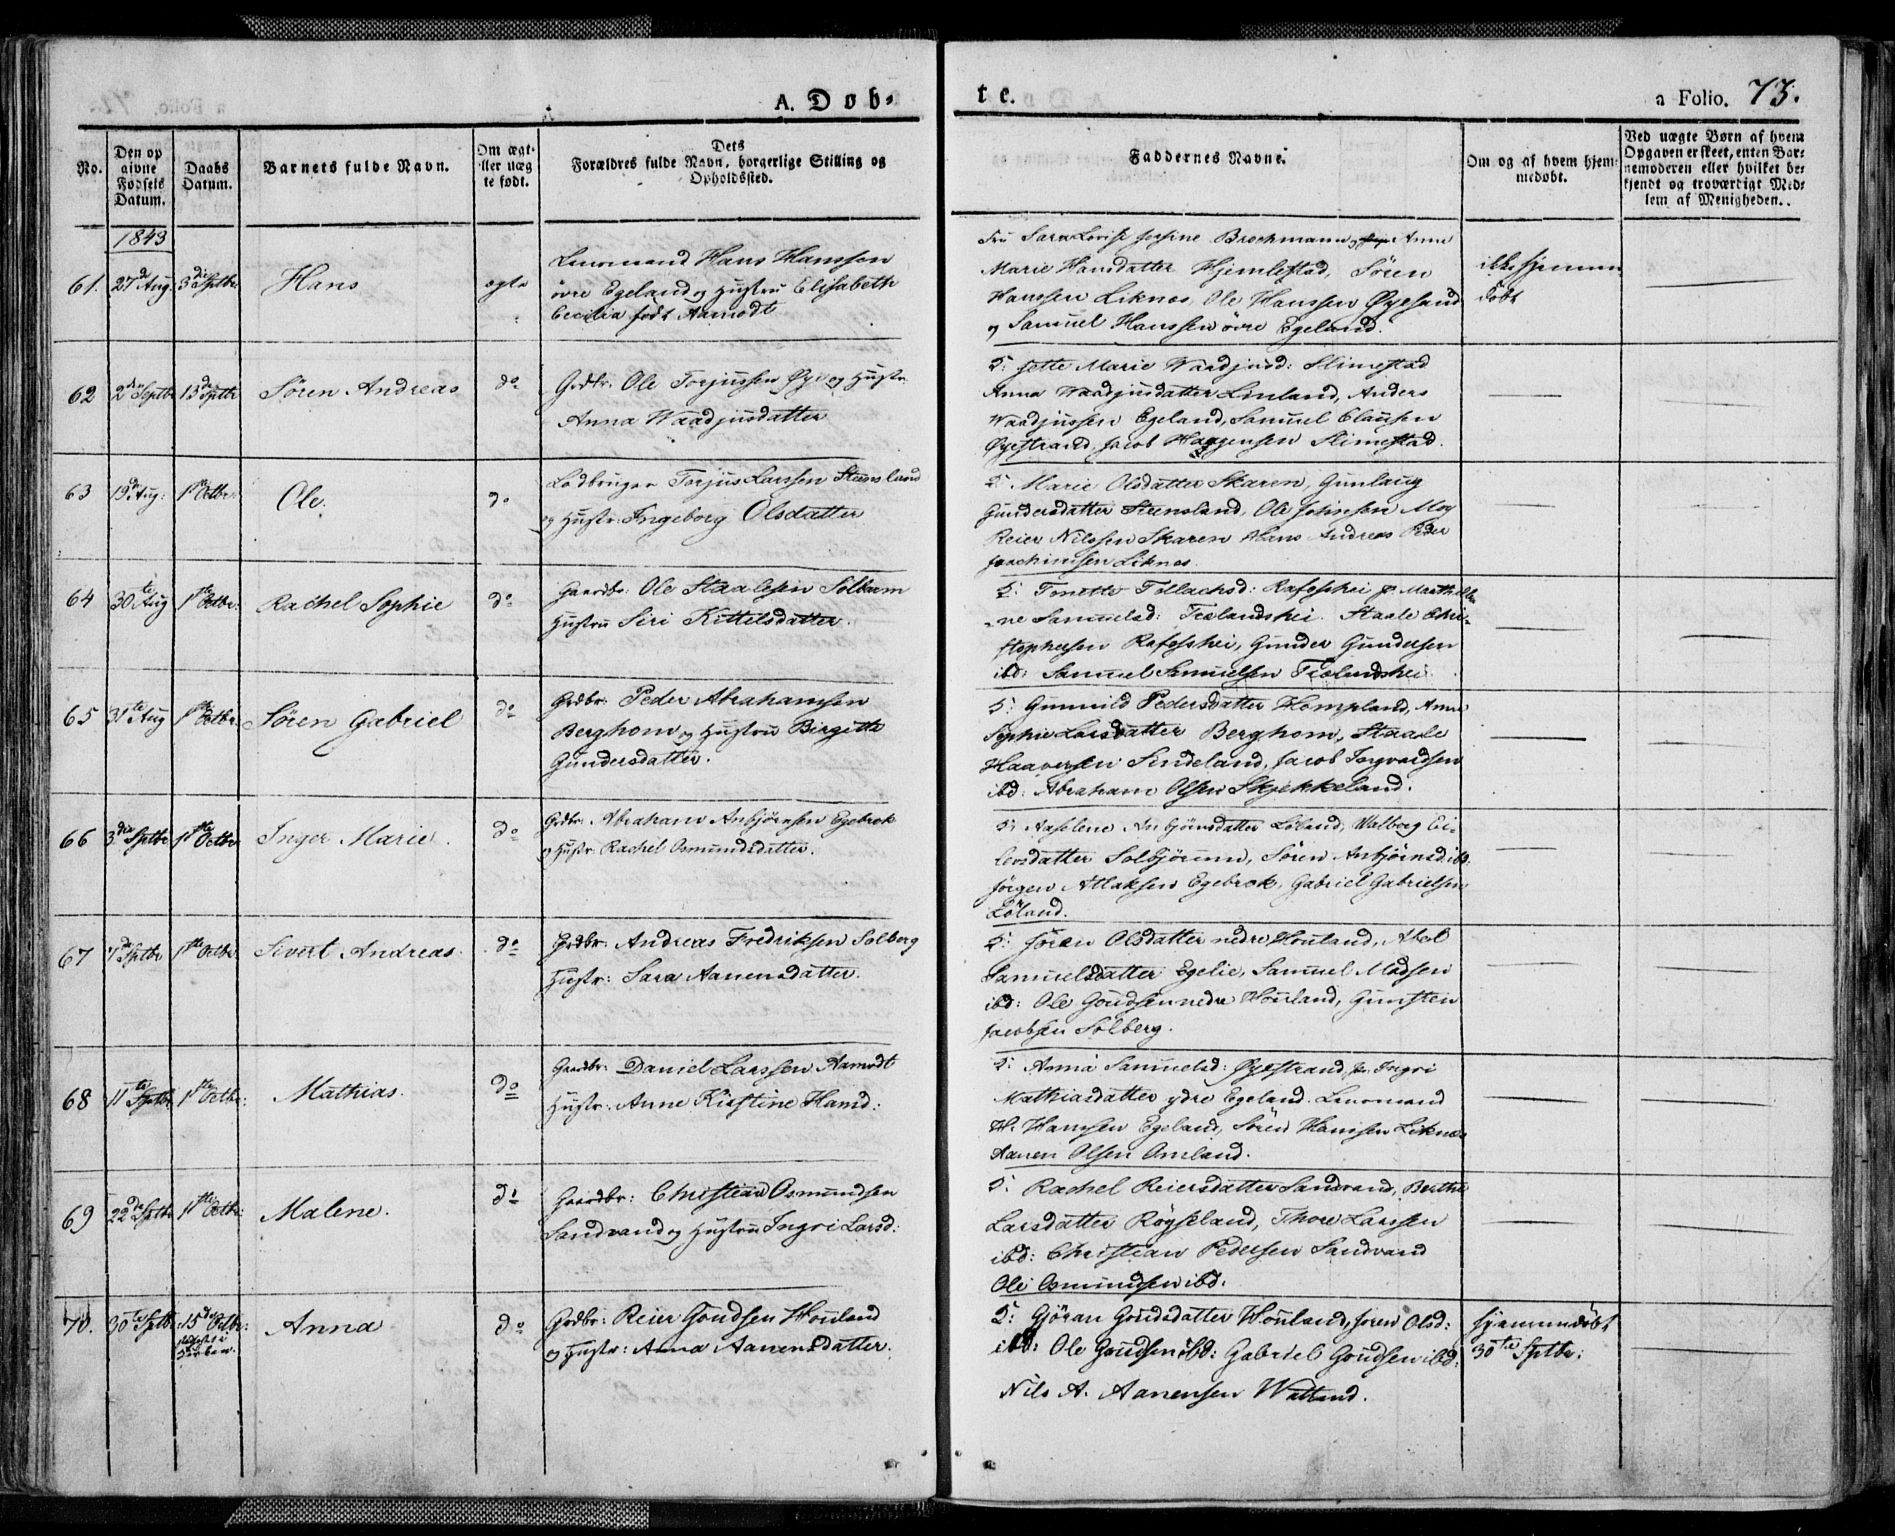 A. Døb-
te.
a Folio. 73.
No.
Den op
givne
Fødsels
Datum.
Daabs
Datum.
Barnets fulde Navn.
Om ægte
eller uæg
te født.
Dets
Forældres fulde Navn, borgerlige Stilling og
Opholdssted.
Faddernes Navne.
Om og af hvem hjem-
medøbt.
Ved uægte Børn af hvem
Opgaven er skeet, enten Bar-
nemoderen eller hvilket be-
kjendt og troværdigt Med-
lem af Menigheden.
1843
61. 27de Aug. 3die Septbr Hans ægte
Lensmand Hans Hanssen
øvre Egeland og Hustru Elisabeth
Cecilia født Aamodt
Fru Sara Lovise Josine Brochmann Anne
Marie Hansdatter Hjemlestad, Sören
Hanssen Liknes, Ole Hanssen Øyesand
og Samuel Hanssen övre Egeland.
ikke hjemme
döbt
62 2den Septbr 13de Septbr Sören Andreas do
Grdbr: Ole Torjussen Øye og Hustr:
Anna Waadjusdatter
F: Jette Marie Waadjusd: Slimestad
Anna Waadjusdatter Linland, Anders
Waadjussen Egeland, Samuel Clausen
Øyestrand, Jacob Haagensen Slimestad.
63 19de Aug: 1ste Octbr: Ole. do
Ladbruger Torjus Larssen Steensland
og Hustr: Ingeborg Olsdatter
F: Marie Olsdatter Skaren, Gunlaug
Gundersdatter Steensland, Ole Johnsen Moy
Reier Nilssen Skaren Hans Andreas Peder
Joachimsen Liknes.
64 30te Aug 1ste Octbr: Rachel Sophie do
Gaardbr: Ole Staalesen Solbærn
Hustru Siri Kittelsdatter.
F: Tonette Tollachsd: Rafoshei p. Marthe
ne Samuelsd: Trælandshei. Staale Chri-
stophersen Rafoshei, Gunder Gundersen
ibd: Samuel Samuelsen Trælandshei
65 31te Aug 1ste Octbr. Sören Gabriel do
Grdbr: Peder Abrahamsen
Berghom og Hustru Birgitta
Gundersdatter.
F: Gunvild Pedersdatter Hompland, Anne
Sophie Larsdatter Berghom, Staale
Haaversen Sindeland, Jacob Ingvardsen
ibd: Abraham Olsen Skjekkeland.
66 3die Septbr 1ste Octbr Inger Marie. do
Grdbr: Abraham Anbjörnsen Egebrok
og Hustr: Rachel Osmundsdatter.
F: Aaselene Anbjörnsdatter Löland, Walborg Ei-
levsdatter Solbjörun, Sören Anbjörnsd ibd:
Jörgen Atlaksen Egebrok, Gabriel Gabrielsen
Löland.
67 7de Septbr 1ste Octbr Sivert Andreas. do
Grdbr: Andreas Fredriksen Solberg
Hustr: Sara Aanensdatter.
F: Joren Olsdatter nedre Houland, Abel
Samuelsdatter Egelie, Samuel Madsen
ibd: Ole Goudsen nedre Houland, Gunsten
Jacobsen Solberg.
68 11te Septbr 1ste Octbr: Mathias. do
Gaardbr: Daniel Larssen Aamodt
Hustr: Anne Kirstine Hansd:
F: Anna Samuelsd: Øyestrand, p. Ingri
Mathiasdatter ydre Egeland. Lensmand
H. Hanssen Egeland, Sören Hanssen Liknes
Aanen Olsen Omland.
69 22de Septbr 1ste Octbr: Malene. do
Gaardbr: Christian Osmundsen
Sandvand og Hustru Ingri Larsd:
F: Rachel Reiersdatter Sandvand, Berthe
Larsdatter Röyseland, Thore Larssen
ibd: Christian Pedersen Sandvand
Ole Osmundsen ibd.
70. 30te Septbr: 15de Octbr: Anna do
Grdbr: Reier Goudsen Houland
og Hustr: Anna Aanensdatter.
F: Gjöran Goudsdatter Houland, Joren Olsd:
ibd: Ole Goudsen ibd: Gabriel Goudsen ibd:
Nils A. Aanensen Watland.
hjemmedöbt
30te Septbr: